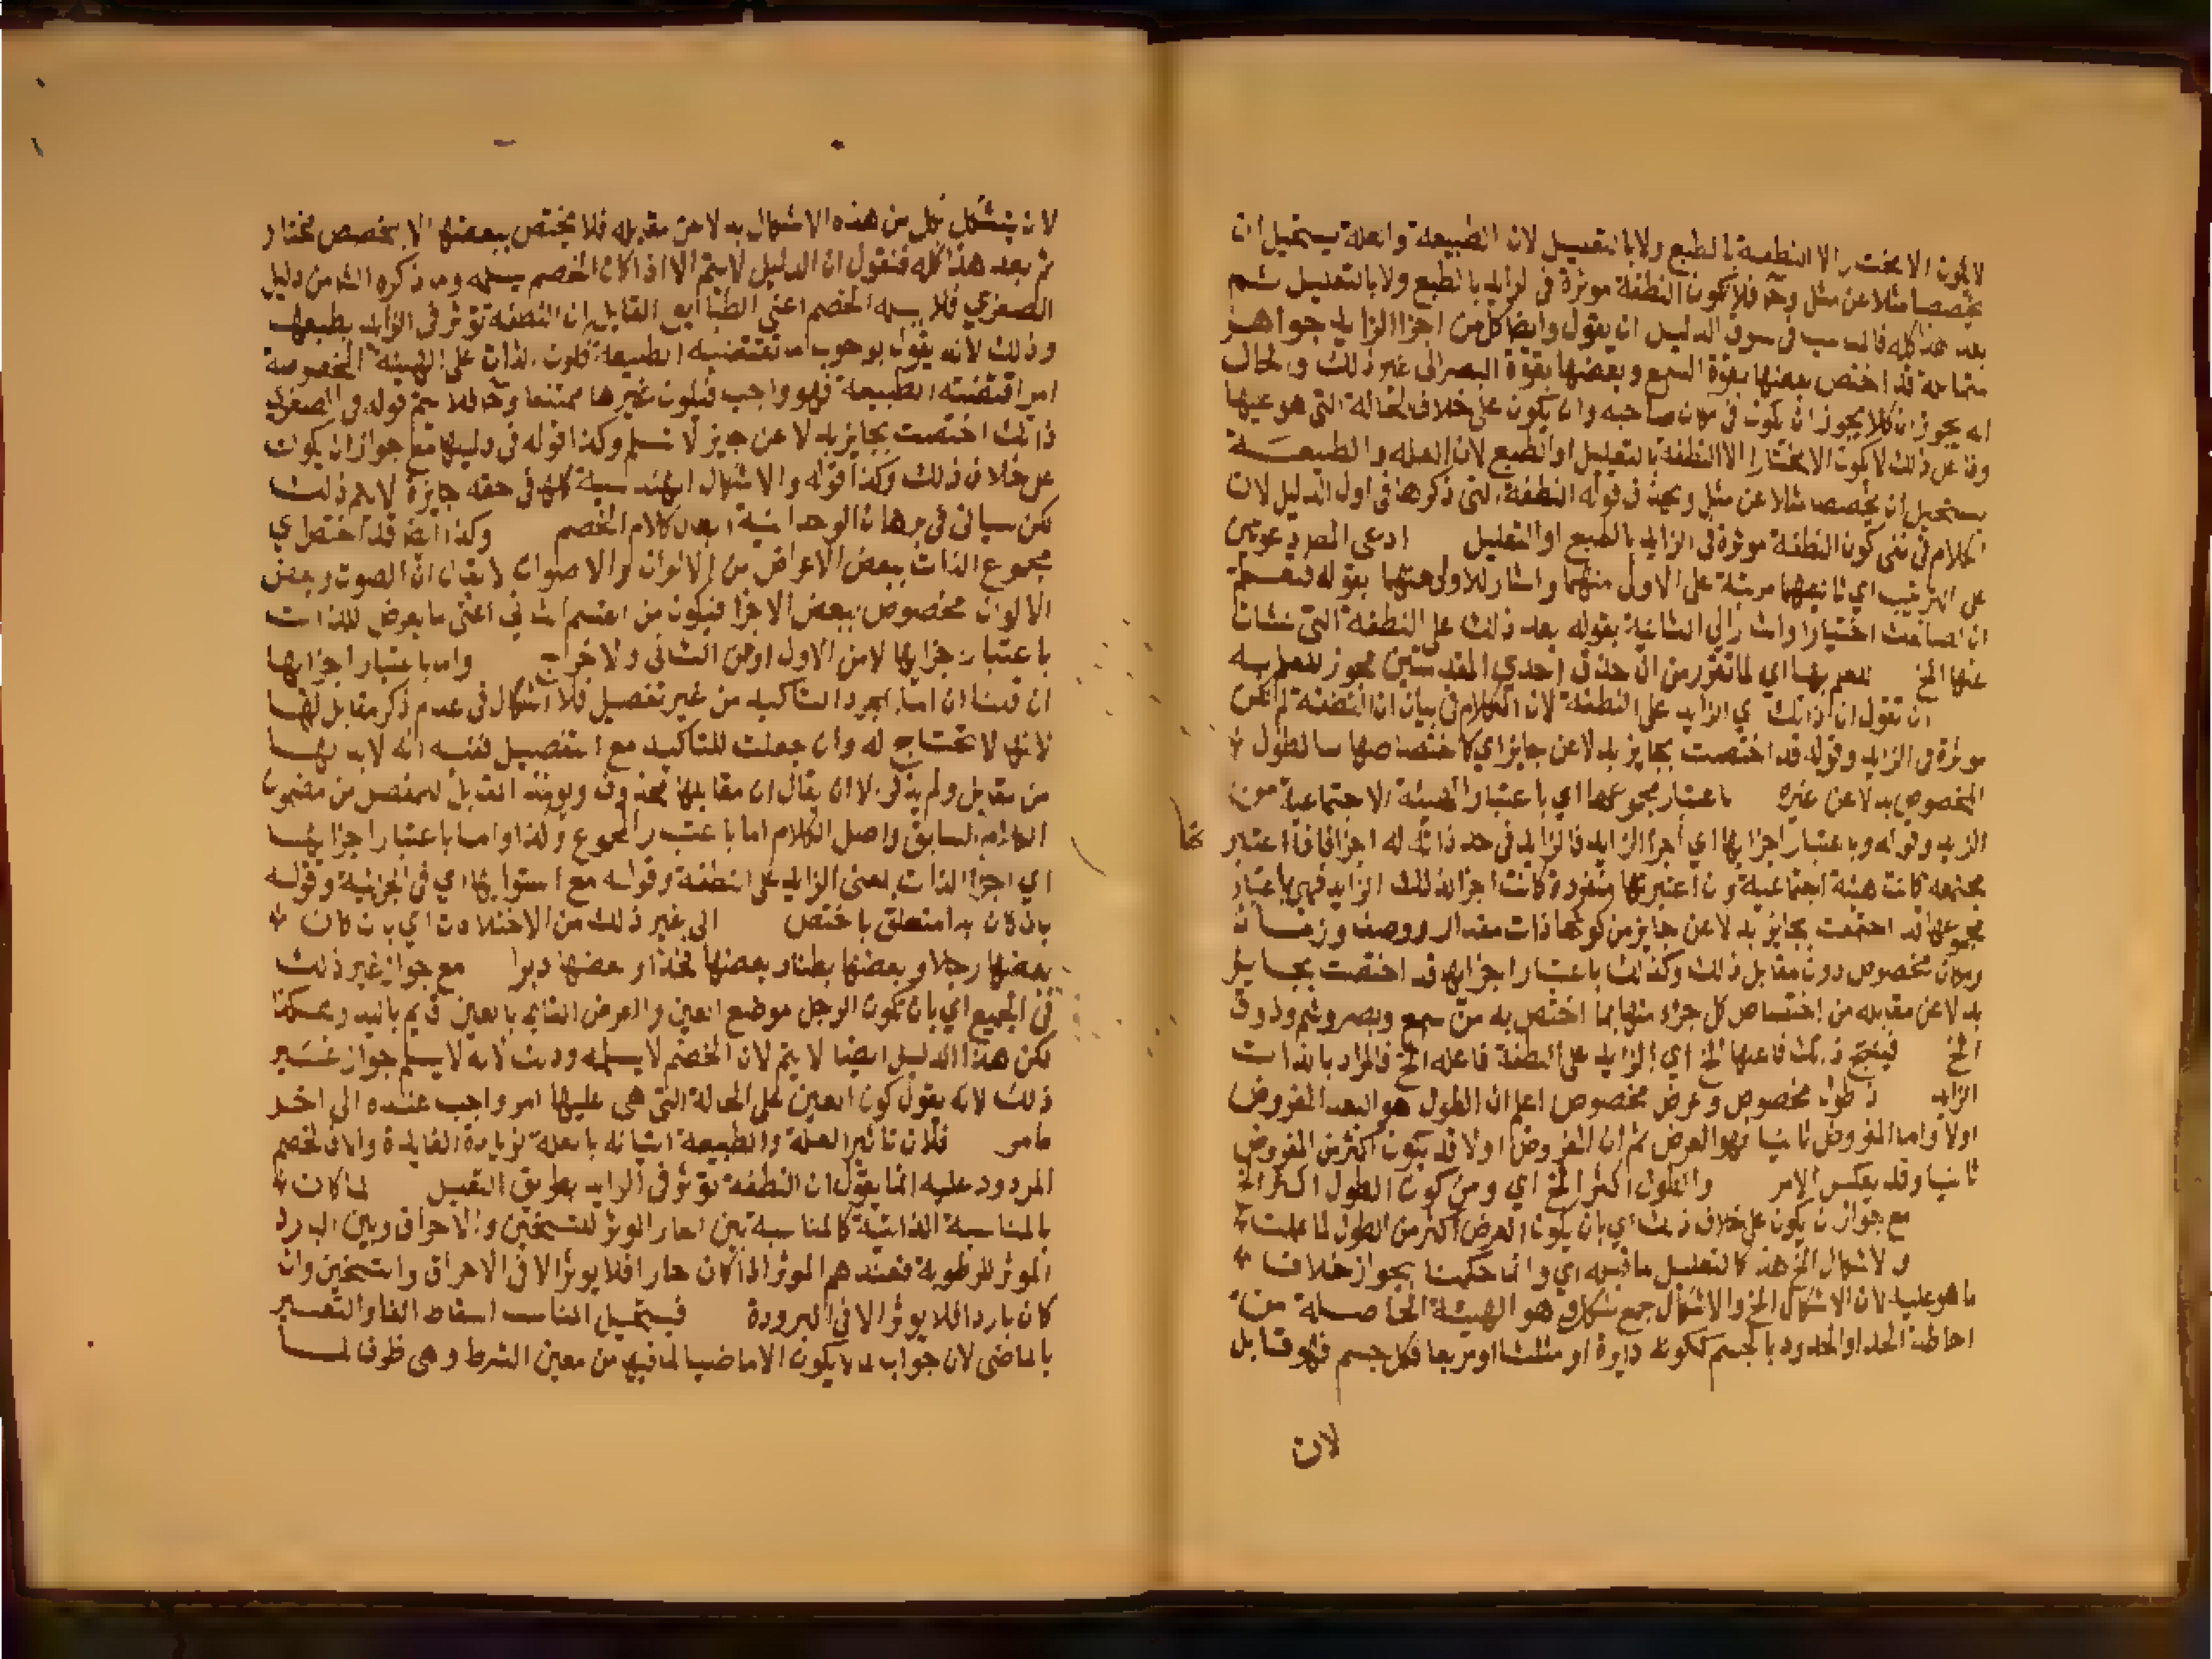 لا يكون الا مختارا لا النطفة بالطبع ولا بالتعليل لان الطبيعة والعلة يستحيل ان
يخصصا مثلا عن مثل وح فلا تكون النطفة موثرة في الزايد بالطبع ولا بالتعليل ثم
بعد هذا كله فالمناسب في سوق الدليل ان يقول وايضا كل من اجزا الزايد جواهر
متماثلة قد اختص بعضها بقوة السمع وبعضها بقوة البصر الى غير ذلك والحال
انه يجوز ان كلا يجوز ان يكون في مكان صاحبه وان يكون على خلاف الحالة التي هو عليها
وفاعل ذلك لا يكون الا مختارا لا النطفة بالتعليل او الطبع لان العلة والطبيعة
يستحيل ان يخصصا مثلا عن مثل ويحذف قوله النطفة التي ذكرها في اول الدليل لان
الكلام في نفي كون النطفة موثرة في الزايد بالطبع او التعليل ادعى المص دعوتين
على الترتيب اي ثانيهما مرتبة على الاول منهما واشار للاولى منهما بقوله فتعلم
ان لصانعك اختيارا واشار الى الثانية بقوله بعد ذلك على النطفة التي نشات
عنها الخ للعلم بها اي لما تقرر من ان حذف احدي المقدمتين يجوز للعلم به
ان تقول ان ذاتك اي الزايد على النطفة لان الكلام في بيان ان النطفة لم تكن
موثرة في الزايد وقوله قد اختصت بجايز بدلا عن جايز اي كاختصاصها بالطول
المخصوص بدلا عن غيره باعتبار مجموعها اي باعتبار الهيئة الاجتماعية من
الزايد وقوله وباعتبار اجزايها اي اجزا الزايد فالزايد في حد ذاته له اجزا فاذا اعتبر
مجتمعه كانت هيئة اجتماعية وان اعتبرتها منفردة كانت اجزا لذلك الزايد فهي باعتبار
مجموعها قد اختصت بجايز بدلا عن جايز من كونها ذات مقدار ووصف وزمان
ومكان مخصوص دون مقابل ذلك وكذلك باعتبار اجزايها قد اختصت بجايز
بدلا عن مقابله من اختصاص كل جزء منها بما اختص به من سمع وبصر وشم وذوق
الخ فينتج ذلك فاعلها الخ اي الزايد على النطفة فاعله الخ فالمراد بالذات
الزايد ذ طول مخصوص وعرض مخصوص اعلم ان الطول هو البعد المفروض
اولا واما المفروض ثانيا فهو العرض ثم ان المفروض اولا قد يكون اكثر من المفروض
ثانيا وقد يعكس الامر والطول اكثر الخ اي ومن كون الطول اكثر الخ
مع جواز ان يكون على خلاف ذلك اي بان يكون العرض اكثر من الطول لما علمت
والاشكال الخ هذا كالتعليل ما قبله اي وانما حكمنا بجواز خلاف
ما هو عليه لان الاشكال الخ والاشكال جمع شكل وهو الهيئة الحاصلة من
احاطة الحد او الحدود بالجسم ككونه دايرة او مثلثا او مربعا فكل جسم فهو قابل
لان
لان يتشكل بكل من هذه الاشكال بدلا عن مقابله فلا يختص ببعضها الا بمخصص مختار
ثم بعد هذا كله فنقول ان الدليل لا يتم الا اذا كان الخصم يسلمه وما ذكره الش من دليل
الصغري فلا يسلمه الخصم اعني الطبايعي القايل بان النطفة توثر في الزايد بطبعها
وذلك لانه يقول بوجوب ما تقتضيه الطبيعة فكون الذات على الهيئة المخصوصة
امر اقتضته الطبيعة فهو واجب فيكون غيرها ممتنعا وح فلا يتم قوله في الصغري
ذاتك اختصت بجايز بدلا عن جايز لا نسلم وكذا قوله في دليلها مع جواز ان يكون
على خلاف ذلك وكذا قوله والاشكال الهندسية كلها في حقه جايزة لا يتم ذلك
لكن سياتي في برهان الوحدانية ابطال كلام الخصم وكذا ايضا قد اختص اي
مجموع الذات ببعض الاعراض من الالوان والاصوات لا يقال ان الصوت وبعض
الالوان مخصوص ببعض الاجزا فيكون من القسم الثاني اعني ما يعرض للذات
باعتبار اجزايها لا من الاول او من الثاني ولا حرج واما باعتبار اجزايها
ان قلنا ان اما لمجرد التاكيد من غير تفصيل فلا اشكال في عدم ذكر مقابل لها
لانها لا تحتاج له وان جعلت للتاكيد مع التفصيل ففيه انه لابد لها
من مقابل ولم يذكر الا ان يقال ان مقابلها محذوف ويوخذ المقابل للمفصل من مضمون
الكلام السابق واصل الكلام اما باعتبار المجموع فكذا واما باعتبار اجزايها
اي اجزا الذات بمعنى الزايد على النطفة وقوله مع استوايها اي في الجرمية وقوله
بان كان يدا متعلق باختص الى غير ذلك من الاختلافات اي بان كان
بعضها رجلا وبعضها بطنا وبعضها فخذا وبعضها دبرا مع جواز غير ذلك
في الجميع اي بان يكون الرجل موضع العين والعرض القايم بالعين قايم باليد وعكسه
لكن هذا الدليل ايضا لا يتم لان الخصم لا يسلمه وذلك لانه لا يسلم جواز غير
ذلك لانه يقول كون العين على الحالة التي هي عليها امر واجب عنده الى اخر
ما مر فلان تاثير العلة والطبيعة اتيانه بالعلة لزيادة الفايدة والا فالخصم
المردود عليه انما يقول ان النطفة توثر في الزايد بطريق التعليل لما كان
بالمناسبة الذاتية كالمناسبة بين الحار الموثر للتسخين والاحراق وبين البارد
الموثر للرطوبة فعندهم الموثر اذا كان حارا فلا يوثر الا في الاحراق والتسخين وان
كان باردا فلا يوثر الا في البرودة فيستحيل المناسب اسقاط الفا والتعبير
بالماضي لان جواب لما لا يكون الا ماضيا لما فيها من معني الشرط وهي ظرف لما